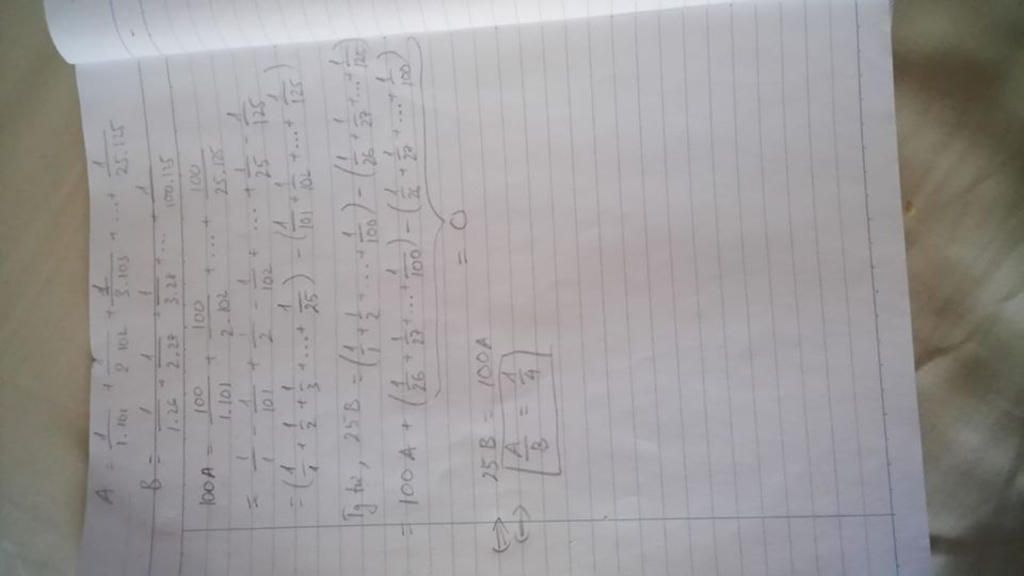 A = 1/1.101 + 1/2.102 + 1/3.103 + ... + 1/25.125
B = 1/1.26 + 1/2.27 + 1/3.28 + ... + 1/100.125
100A = 100/1.101 + 100/2.102 + ... + 100/25.125
= 1/1 - 1/101 + 1/2 - 1/102 + ... + 1/25 - 1/125
= (1/1 + 1/2 + 1/3 + ... + 1/25) - (1/101 + 1/102 + ... + 1/125)
Tg tự, 25B = (1/1 + 1/2 + ... + 1/100) - (1/26 + 1/27 + ... + 1/125)
= 100A + (1/26 + 1/27 + ... + 1/100) - (1/26 + 1/27 + ... + 1/100)
= 0
↔ 25B = 100A
↔ A/B = 1/4